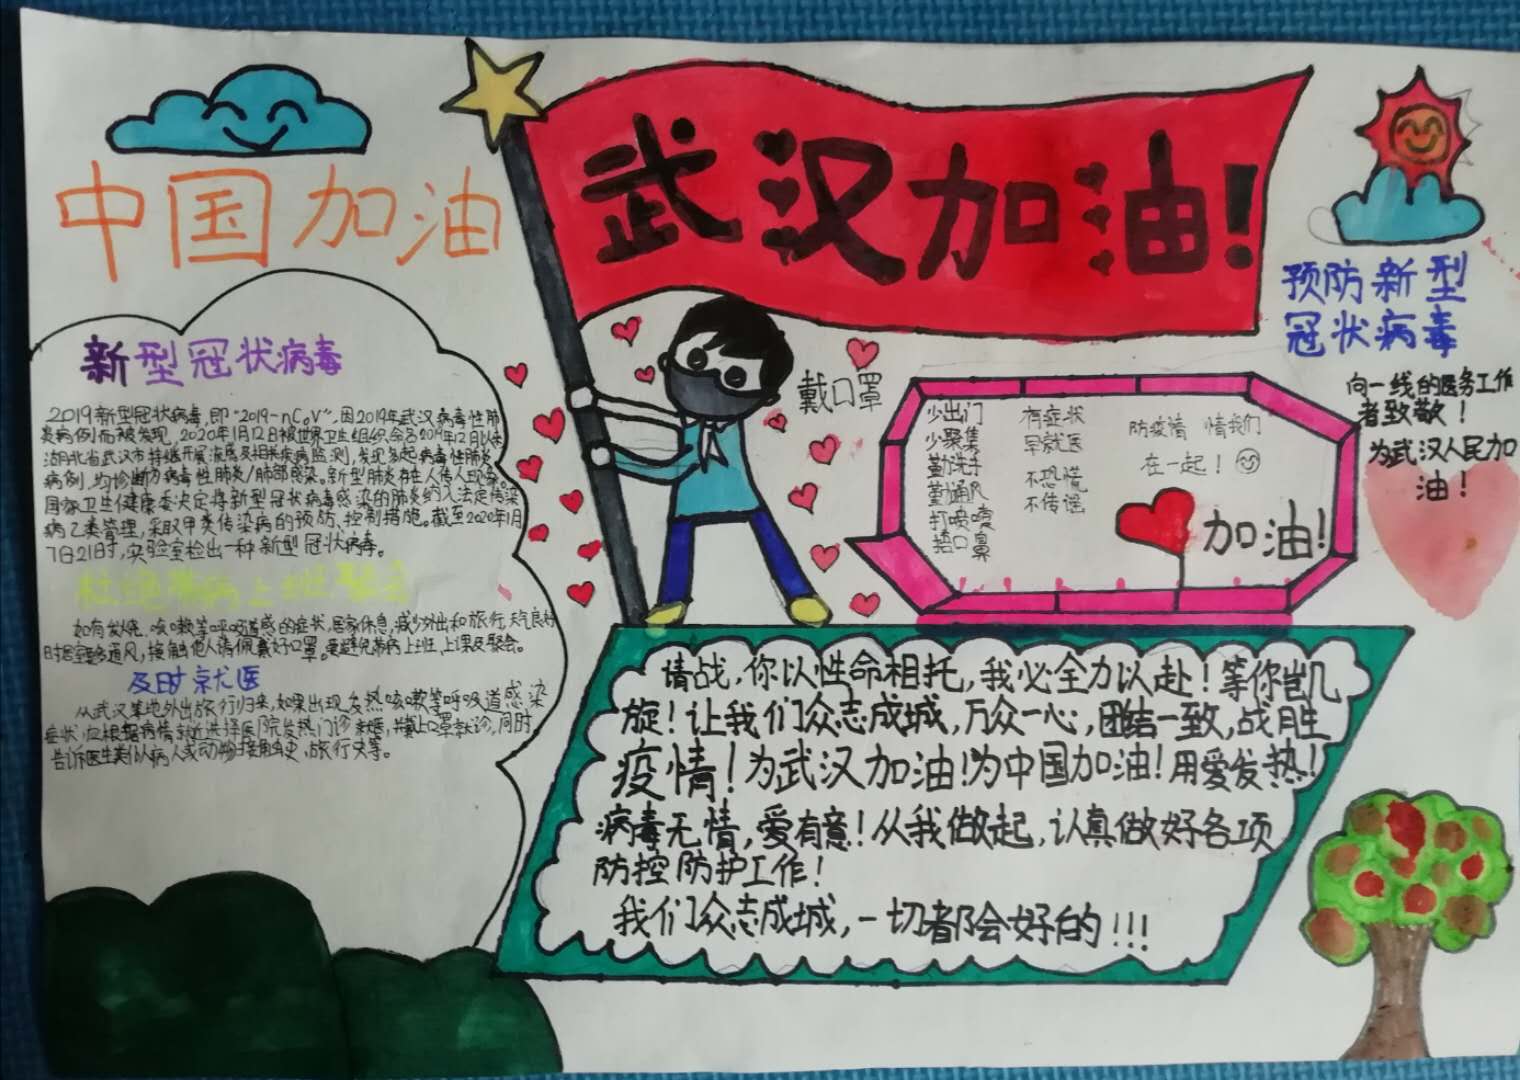 中国加油
武汉加油！
新型冠状病毒
2019新型冠状病毒，即“2019-nCoV”，因2019年武汉病毒性肺
炎病例而被发现，2020年1月12日被世界卫生组织命名2019年12月以来
湖北省武汉市持续开展流感及相关疾病监测，发现多起病毒性肺炎
病例，均诊断为病毒性肺炎/肺部感染。新型肺炎存在人传人现象。
国家卫生健康委决定将新型冠状病毒感染的肺炎纳入法定传染
病乙类管理，采取甲类传染病的预防、控制措施。截至2020年1月
7日21时，实验室检出一种新型冠状病毒。
杜绝带病上班聚会
如有发烧、咳嗽等呼吸道感的症状，居家休息，减少外出和旅行，天气良好
时居室多通风，接触他人请佩戴好口罩。要避免带病上班、上课及聚会。
及时就医
从武汉等地外出旅行归来，如果出现发热咳嗽等呼吸道感染
症状，应根据病情就近选择医院发热门诊就医，并戴上口罩就诊，同时
告诉医生类似病人或动物接触史、旅行史等。
戴口罩
少出门
少聚集
勤洗手
勤通风
打喷嚏
捂口鼻
有症状
早就医
不恐慌
不传谣
防疫情 情我们
在一起！
加油！
预防新型
冠状病毒
向一线的医务工作
者致敬！
为武汉人民加
油！
请战，你以性命相托，我必全力以赴！等你凯
旋！让我们众志成城，万众一心，团结一致，战胜
疫情！为武汉加油！为中国加油！用爱发热！
病毒无情，爱有意！从我做起，认真做好各项
防控防护工作！
我们众志成城，一切都会好的！！！